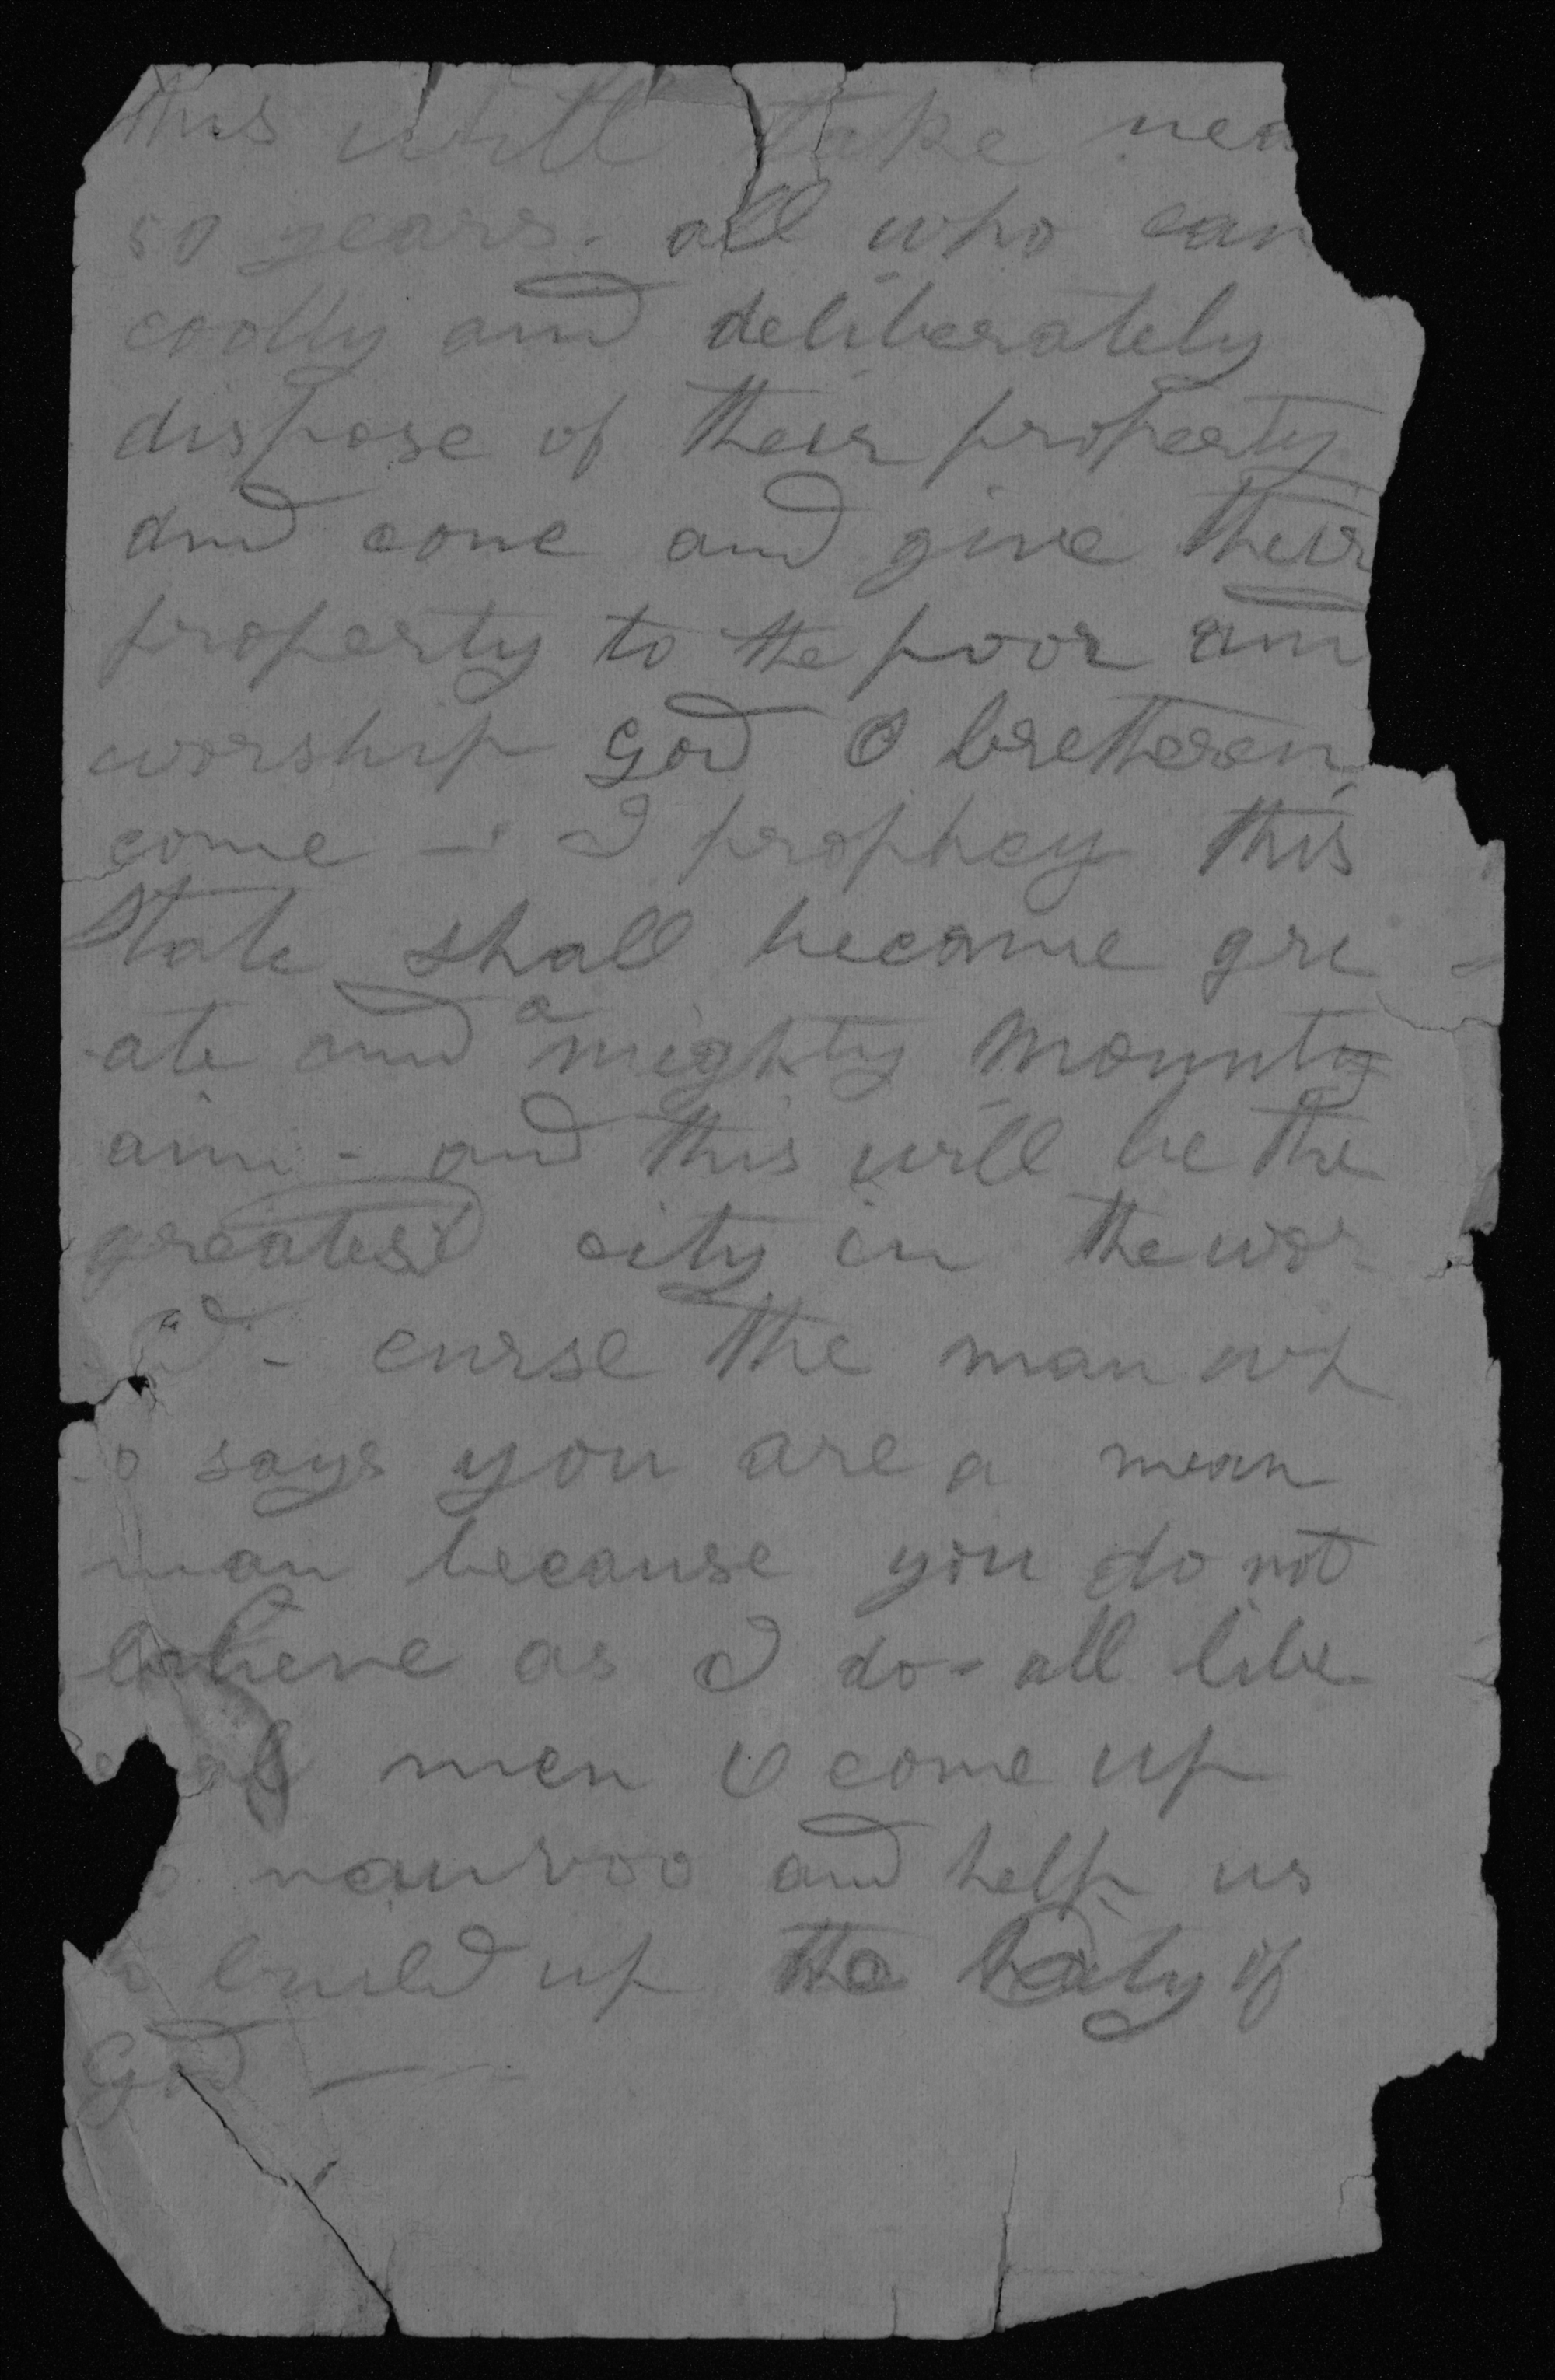 this will take nea
50 years. all who can
coolly and deliberately
dispose of their property
and come and give their
property to the poor and
worship God O bretheren
come - I prophcy this
State shall become gre
ate and a mighty Mount
ain - and this will be the
greatest city in the wor
ld - curse the man wh
o says you are a mean
man because you do not
believe as I do - all libe
ral men O come up
o nauvoo and help us
to build up the City of
God —